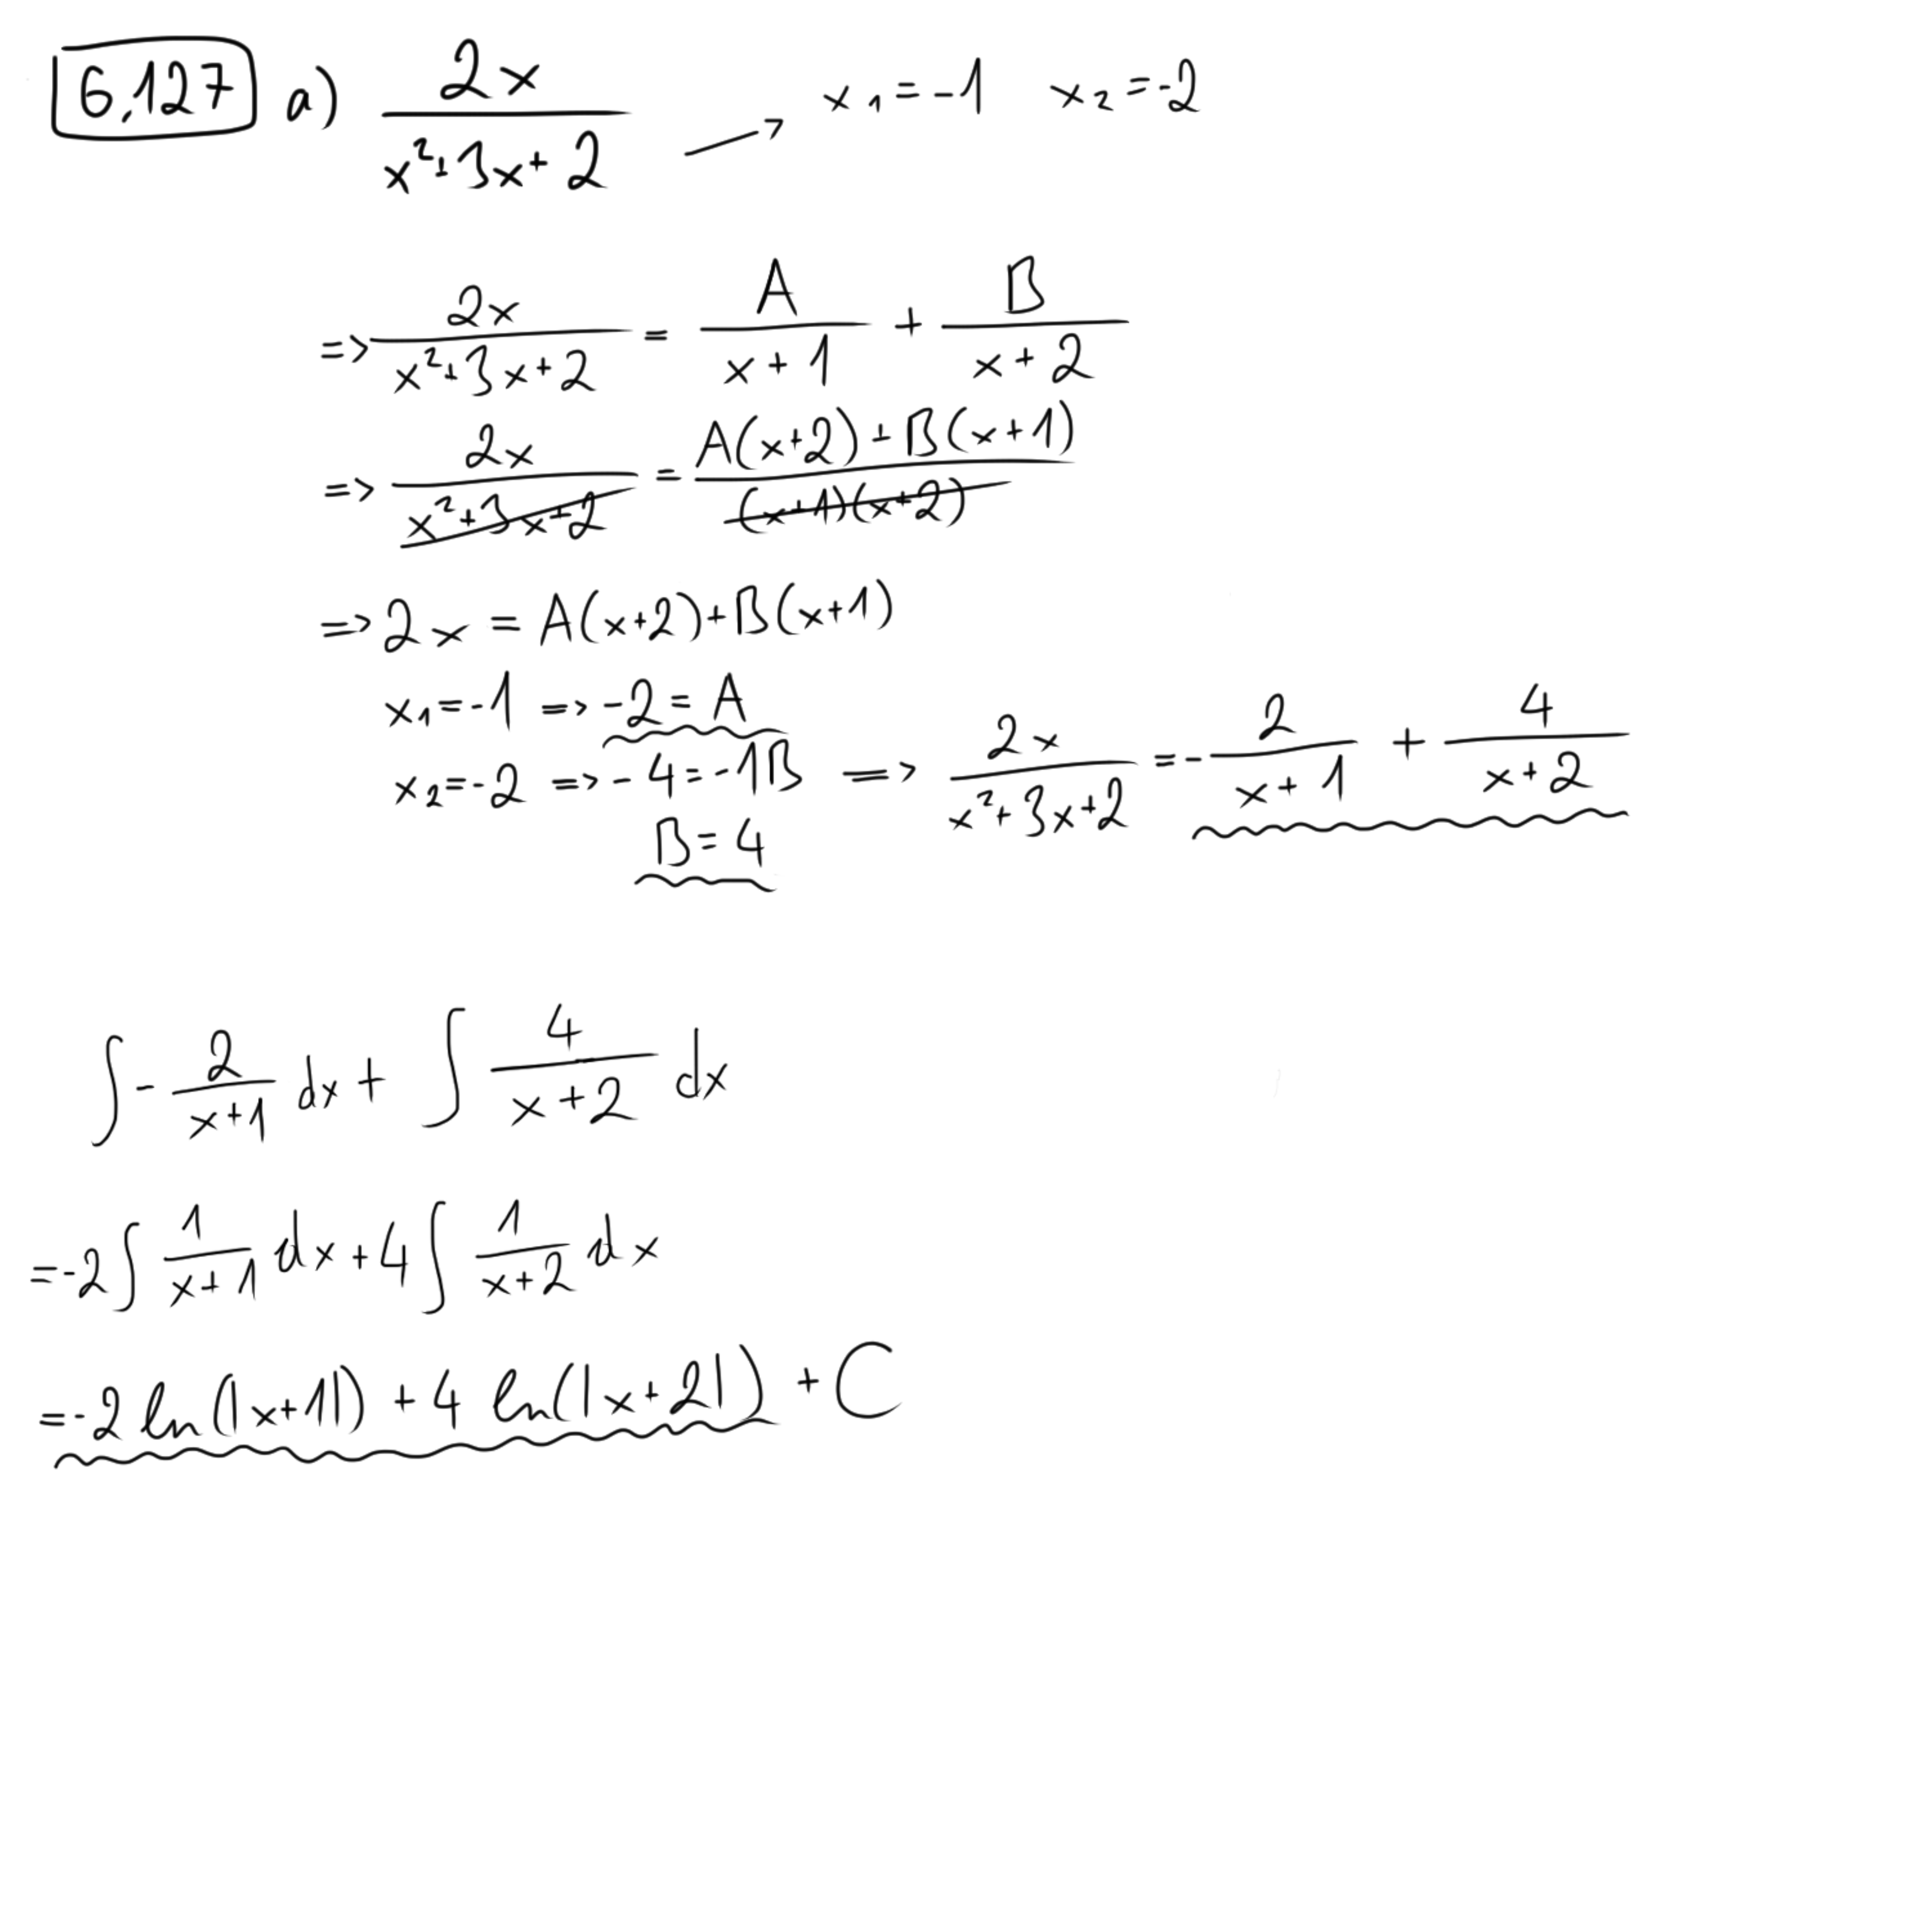 6.127 a) 2x / (x²+3x+2) → x₁ = -1 x₂ = -2
=> 2x / (x²+3x+2) = A / (x+1) + B / (x+2)
=> 2x / (x²+3x+2) = (A(x+2)+B(x+1)) / ((x+1)(x+2))
=> 2x = A(x+2)+B(x+1)
x₁ = -1 => -2 = A
x₂ = -2 => -4 = -1B => 2x / (x²+3x+2) = - 2 / (x+1) + 4 / (x+2)
B = 4
∫ - 2 / (x+1) dx + ∫ 4 / (x+2) dx
= -2 ∫ 1 / (x+1) dx + 4 ∫ 1 / (x+2) dx
= -2 ln(|x+1|) + 4 ln(|x+2|) + C